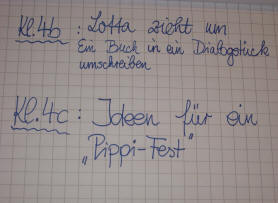 Kl.4b : Lotta zieht um
Ein Buch in ein Dialogstück
umschreiben
Kl.4c : Ideen für ein
„Pippi-Fest"